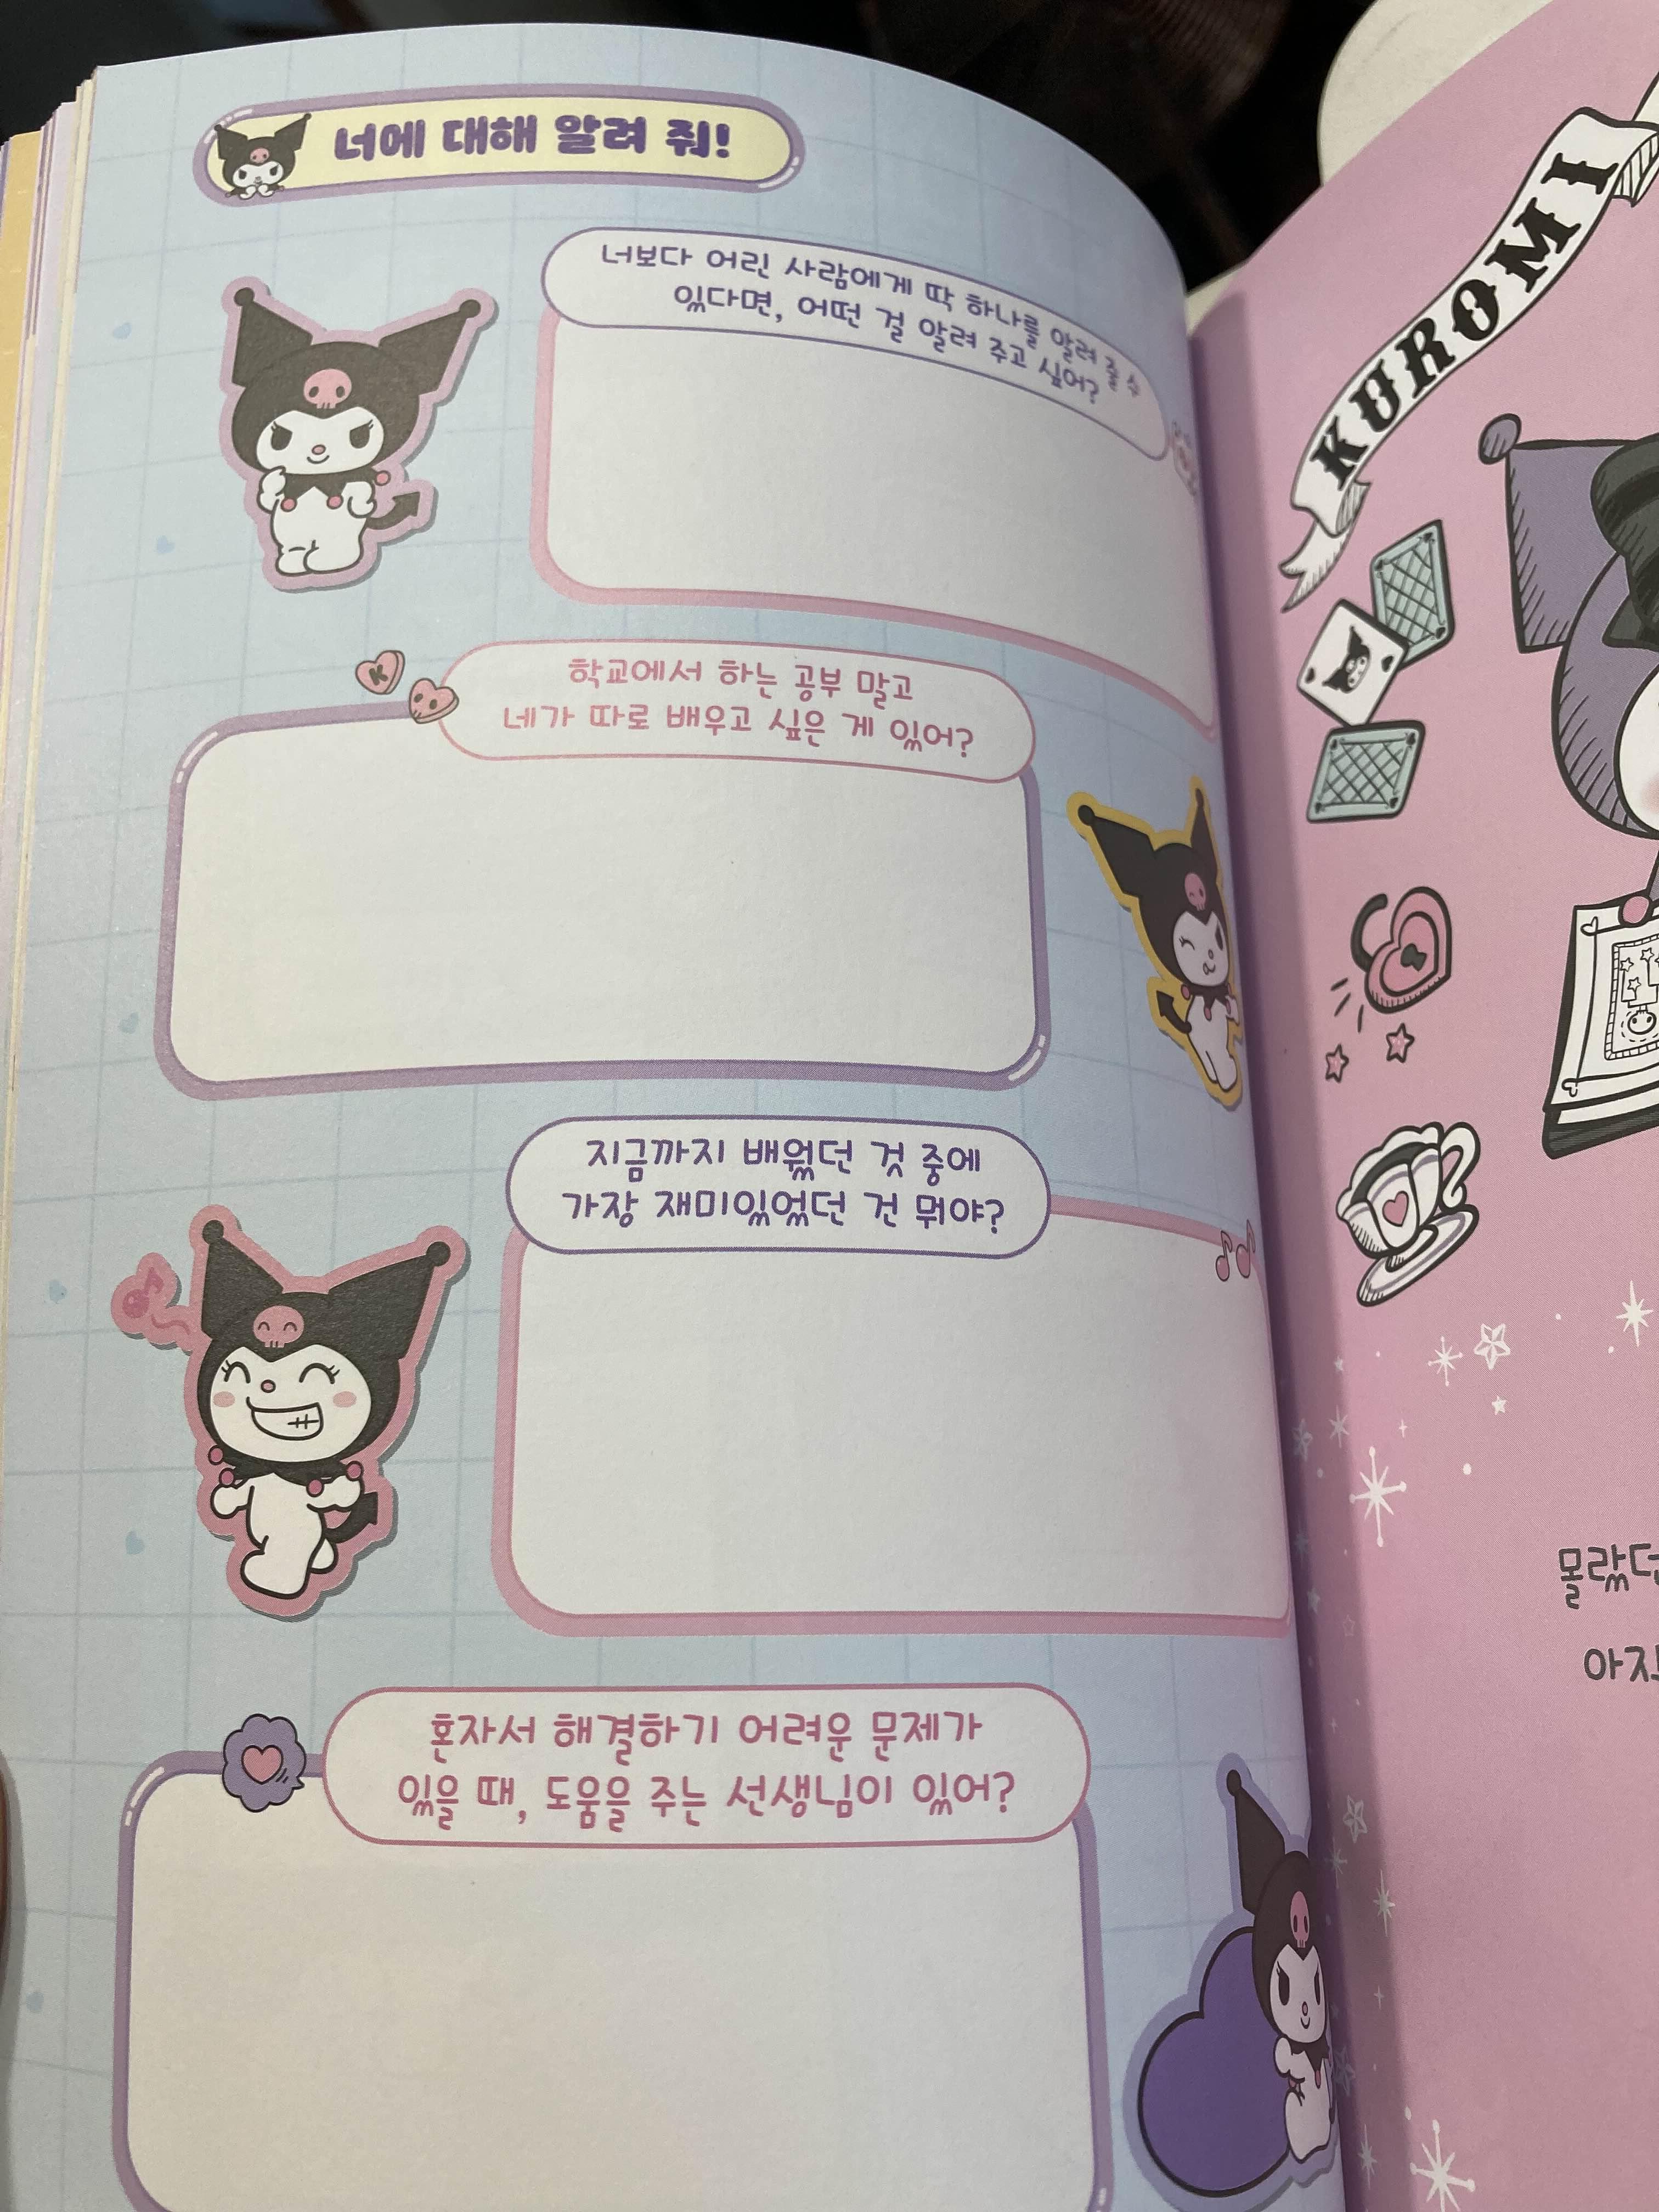 너에 대해 알려 줘!
너보다 어린 사람에게 딱 하나를 알려 줄 수
있다면, 어떤 걸 알려 주고 싶어?
K
학교에서 하는 공부 말고
네가 따로 배우고 싶은 게 있어?
지금까지 배웠던 것 중에
가장 재미있었던 건 뭐야?
혼자서 해결하기 어려운 문제가
있을 때, 도움을 주는 선생님이 있어?
KUROMI
몰랐던